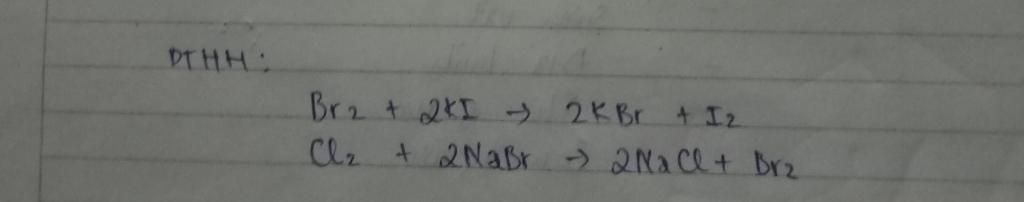 PTHH:
Br2 + 2KI → 2KBr + I2
Cl2 + 2NaBr → 2NaCl + Br2